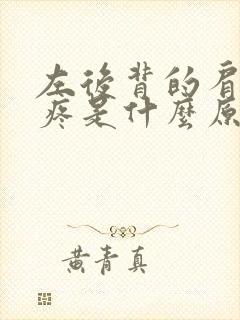 左後背的肩
疼是什麼原
黃青真